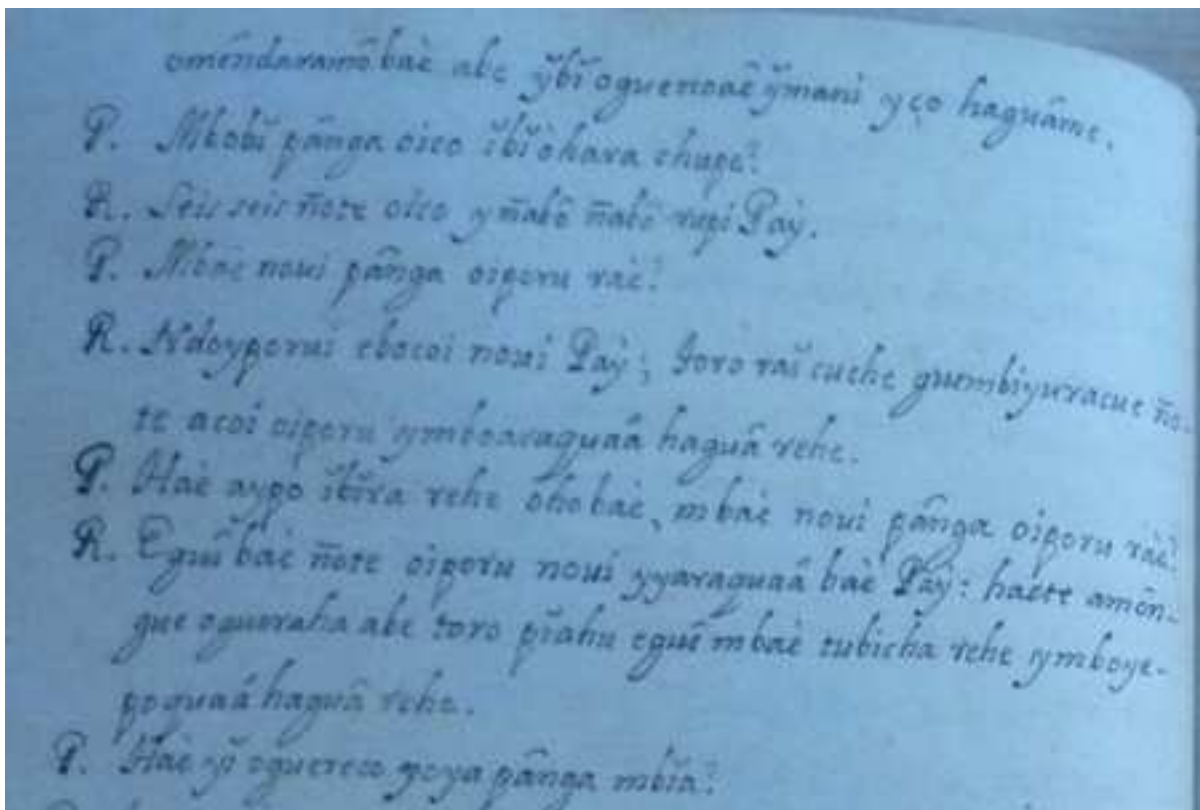 omêndaramô baè abe ỹbĭ oguenoaê ỹmani yço haguâme.
P. Mbobĭ pânga oico ĭbĭ ohara chupe?
R. Seis seis ñote oico y ñabê ñabê rupi Paỳ.
P. Mbaè noui pânga oiporu raè?
R. Ndoyporui ebocoi noui Paỳ; toro raĭ cuehe guembiyuracue ño-
te acoi oiporu ymboaraquaâ haguâ rehe.
P. Haè aypò ĭbĭra rehe ohobaè, mbaè noui pânga oiporu raè?
R. Eguĭ baè ñote oiporu noui yyaraguaâ baè Paỳ: haete amôn-
gue ogueraha abe toro pĭahu eguĭ mbaè tubicha rehe ymboye-
poguaâ haguâ rehe.
P. Haè yĭ oguereco yoya pânga mbĭa?